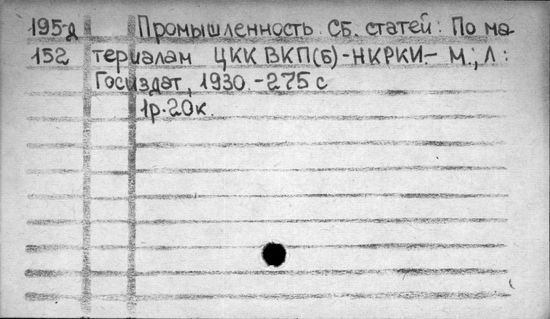 195-д Промышленность. Сб. статей: По ма-
152 териалам ЦКК ВКП(б)-НКРКИ.- М.; Л:
Госиздат, 1930.-275 с
1р.20к.